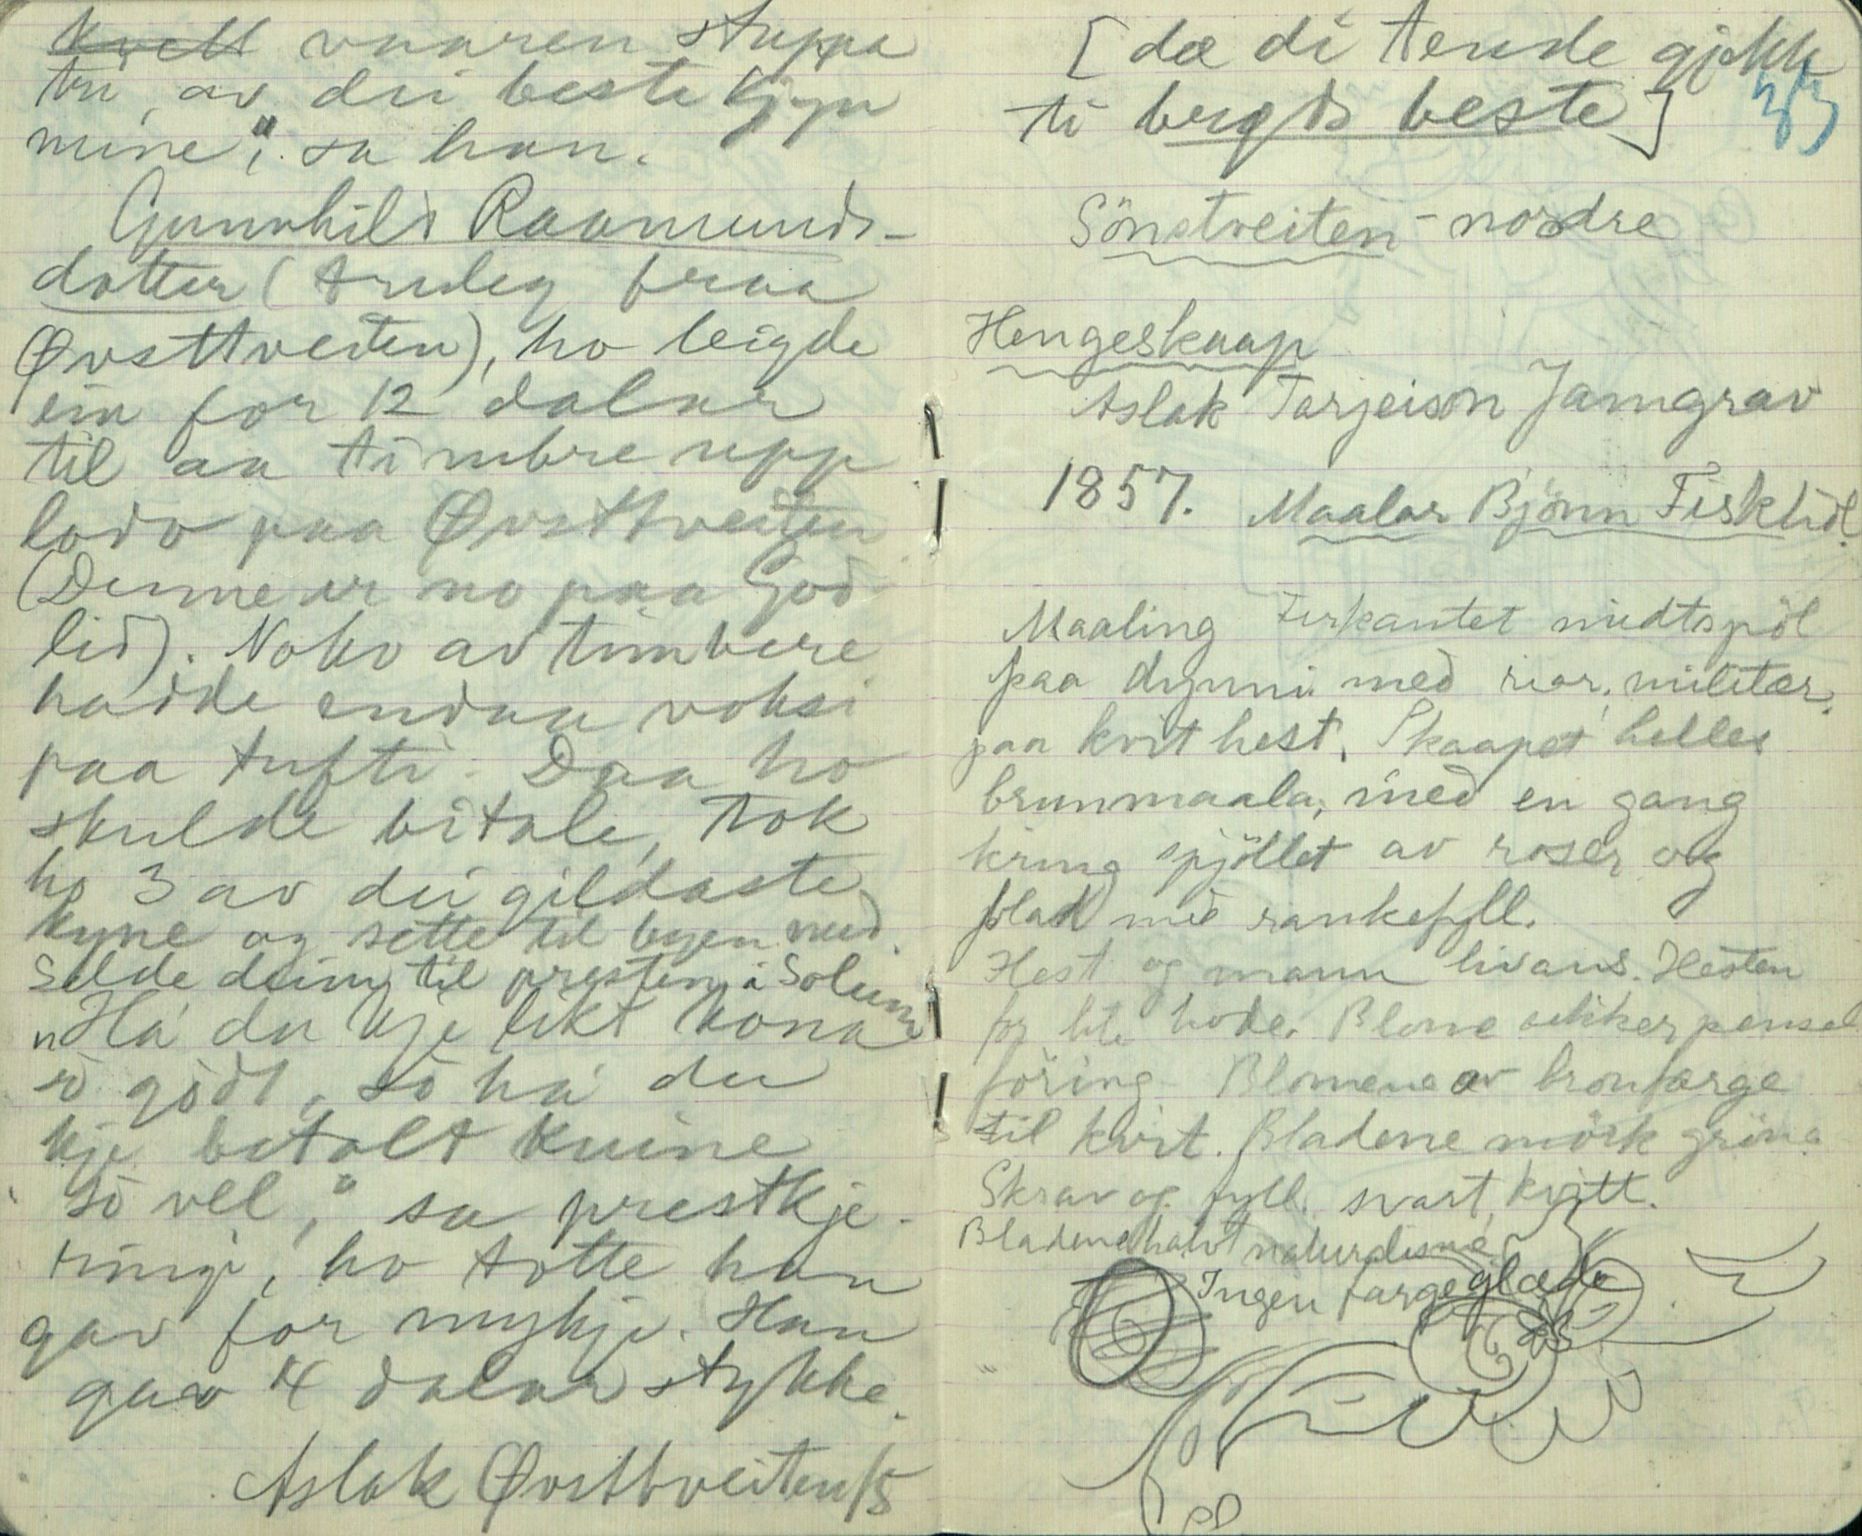 ~~kvelt~~ vaaren stuppa
tri av dei beste kjyn
mine", sa han.
Gunnhild Raamunds-
dotter (truleg fraa
Øvsttveiten), ho leigde
ein for 12 dalar
til aa timbre upp
lado paa Øvsttveiten
(Denne er no paa God-
lid). Noko av timbere
hadde endaa voksi
paa tufti. Daa ho
skulde bitale, tok
ho 3 av dei gildaste
kyne og sette til byen med.
Selde deim til presten i Solum
"Há du kje likt kona
so godt, so há du
kje betalt kuine
so vel," sa prestkje-
ringi, ho totte han
gav for mykje. Han
gav 14 dalar stykke.
Aslak Øvsttveiten /5
[dæ di tende gjekk
ti bygds beste]
33
Sönstveiten - nordre
Hengeskaap
Aslak Tarjeison Jamgrav
1857. Maalar Björnn Fisktjöl.
Maaling Firkantet midtspöl
paa dynni med rior, militær
paa kvit hest. Skaapet helles
brunmaala, med en gang
kring spjöllet av roser og
blad med rankefyll.
Hest og mann livans. Hesten
for lite hode. Blome sikker pensel
föring. Blomene av bronfarge
til kvit. Bladene mörk gröna
Skrav og fyll svart, kvitt.
Bladene halvt naturalisme
Ingen fargeglæde